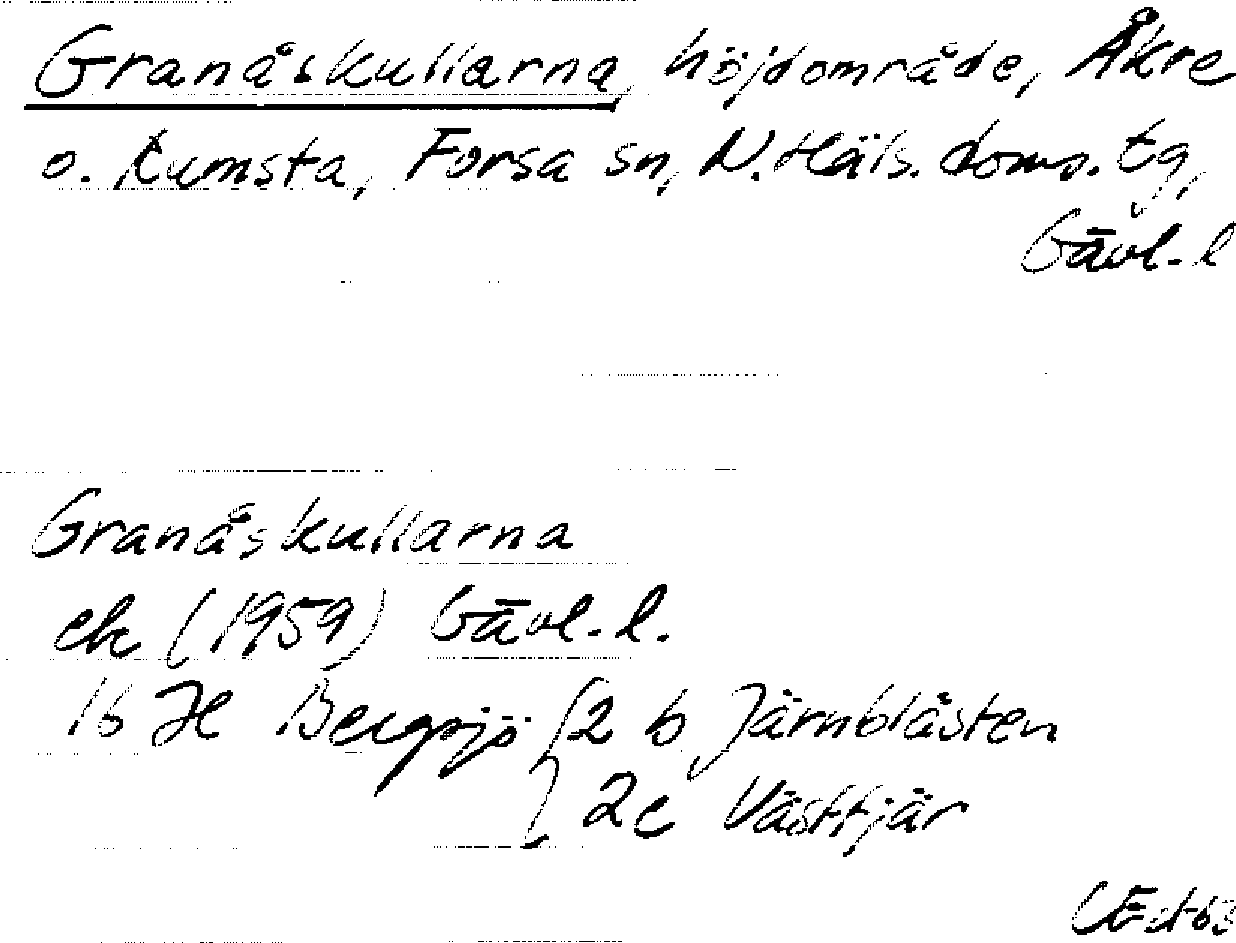 Granåskullarna, höjdområde, Åkre
o. Kumsta, Forsa sn, N. Häls. doms. tg,
Gävl. l
Granåskullarna
ek (1959) Gävl. l.
16 H Bergsjö { 2 b Järnblästen
2c Västtjär
CEdt 63